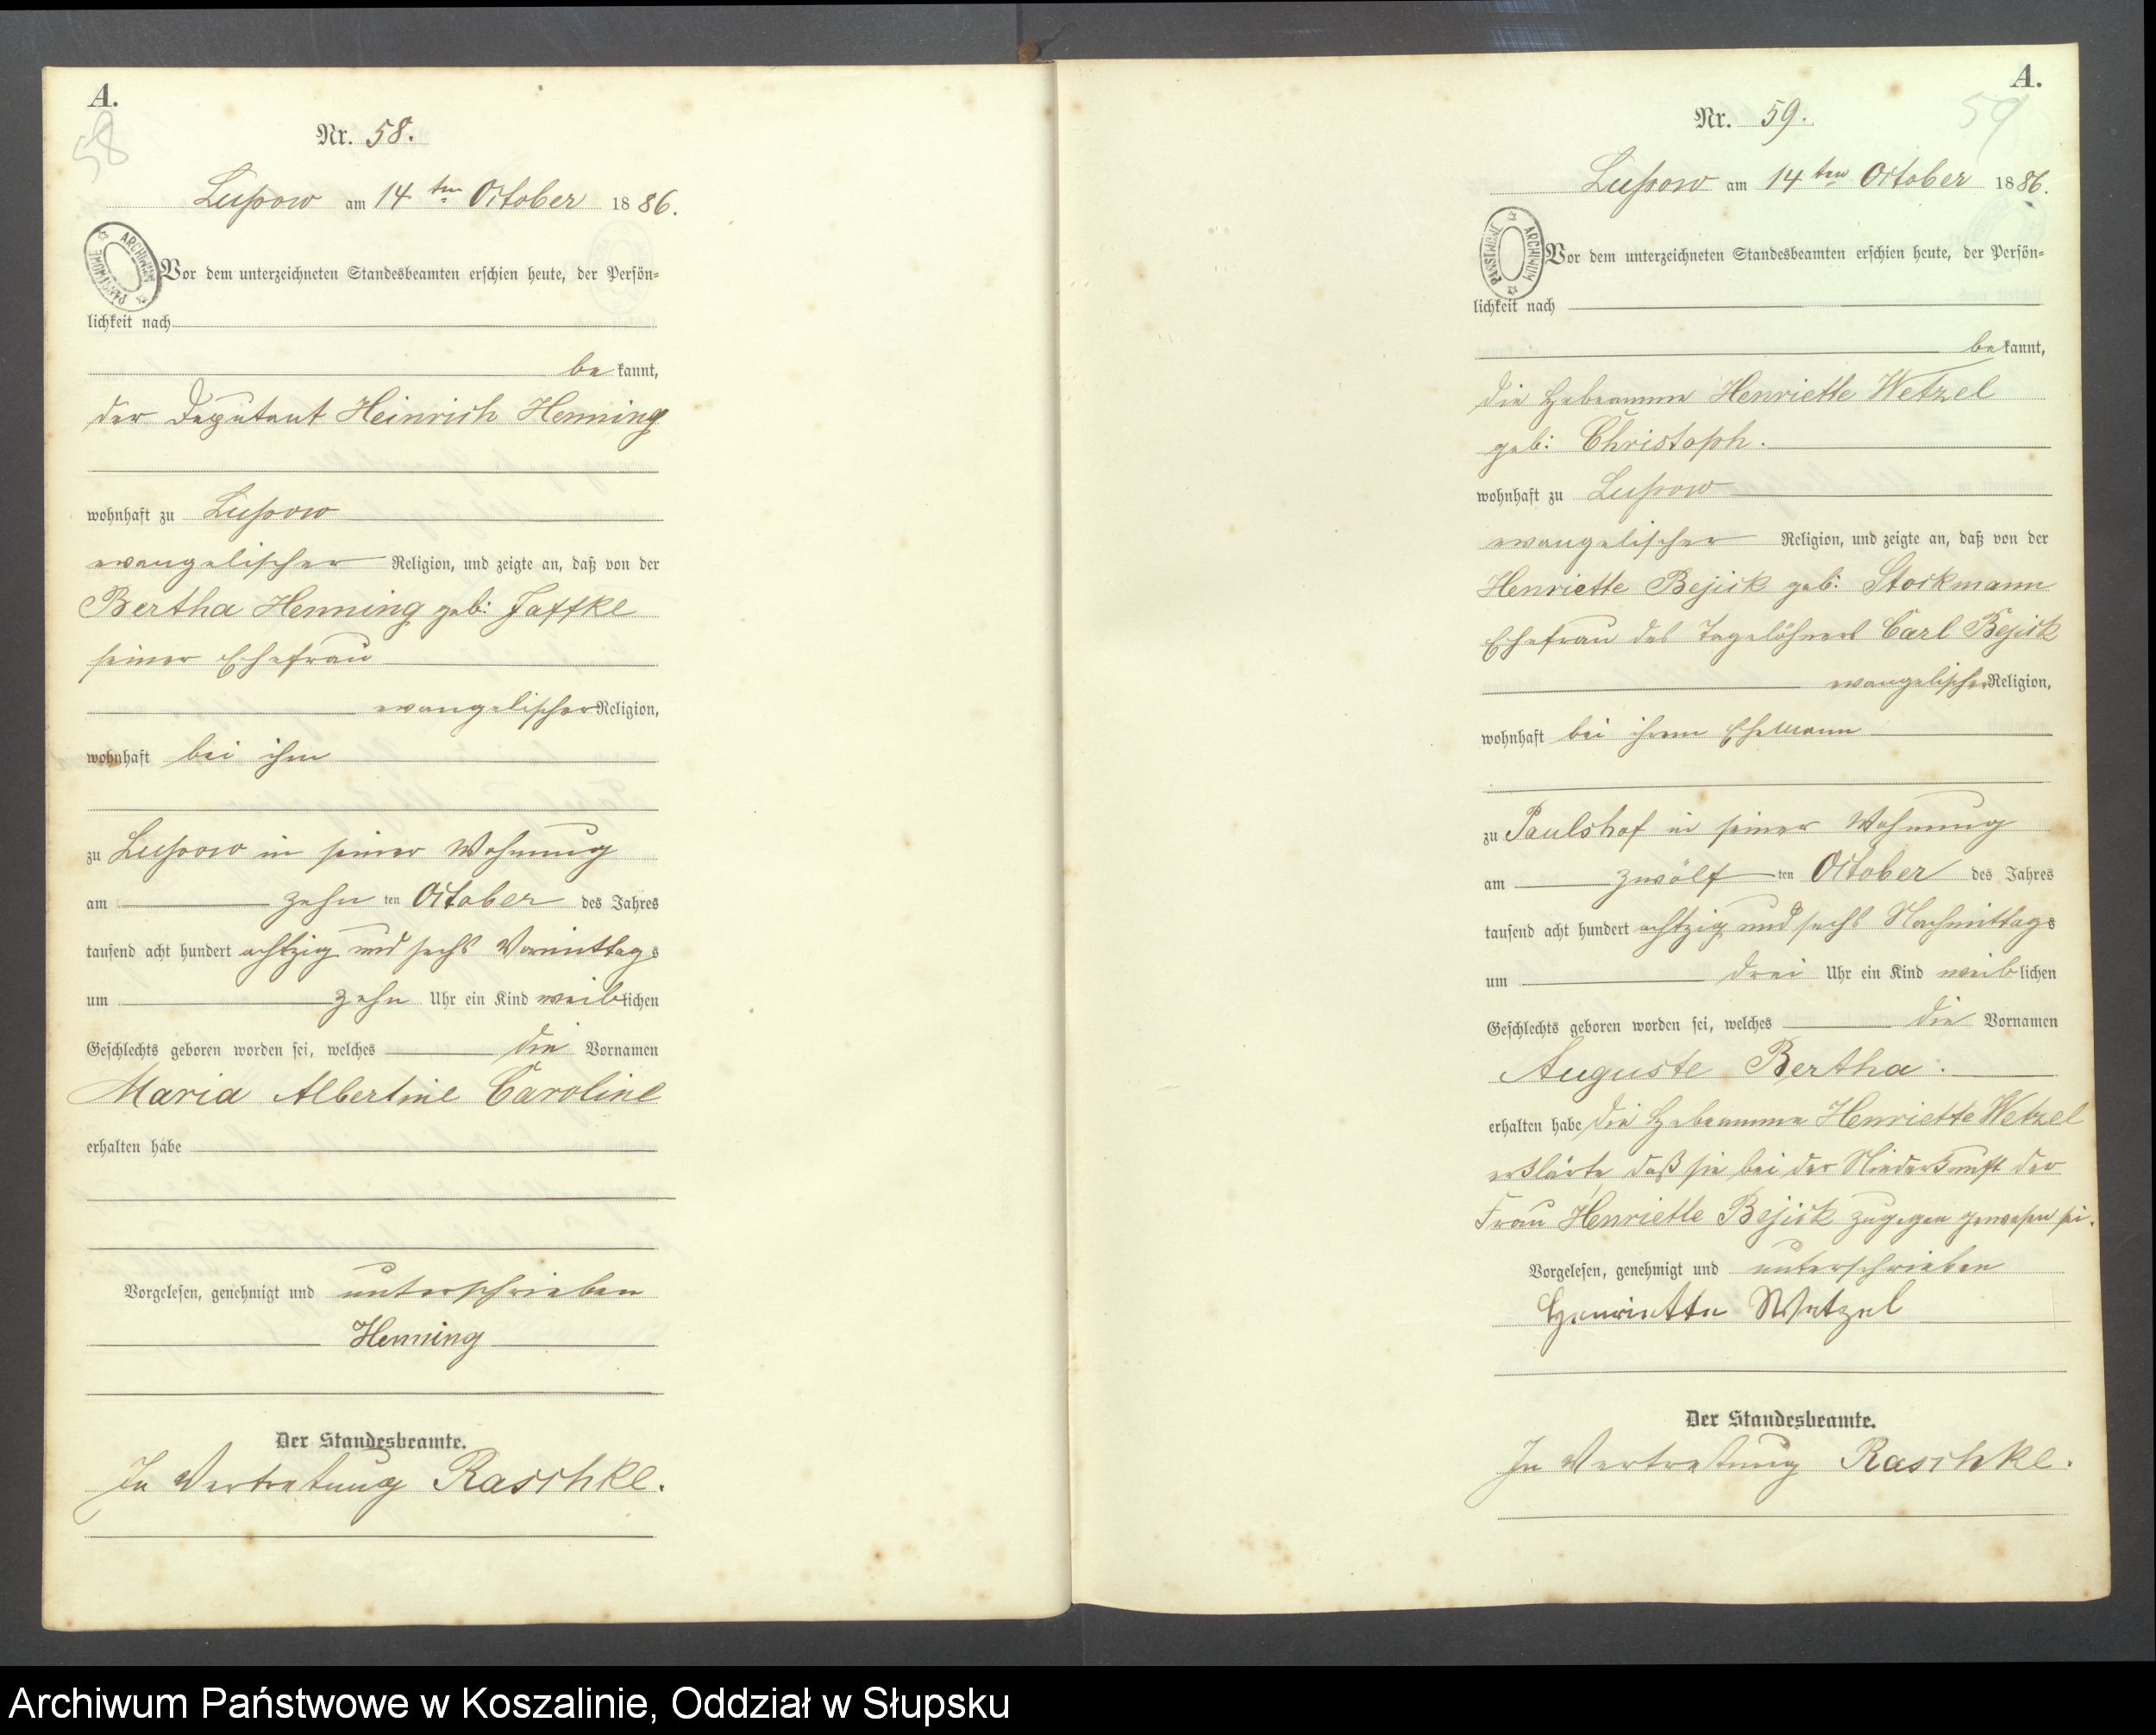 A.
58
Nr. 58.
Lupow am 14ten October 1886.
ARCHIWUM PAŃSTWOWE
Vor dem unterzeichneten Standesbeamten erschien heute, der Persön-
lichkeit nach
bekannt,
der Deputant Heinrich Henning
wohnhaft zu Lupow
evangelischer Religion, und zeigte an, daß von der
Bertha Henning geb: Jaffke
seiner Ehefrau
evangelischer Religion,
wohnhaft bei ihm
zu Lupow in seiner Wohnung
am zehn ten October des Jahres
tausend acht hundert achtzig und sechs Vormittags
um zehn Uhr ein Kind weiblichen
Geschlechts geboren worden sei, welches die Vornamen
Maria Albertine Caroline
erhalten habe
Vorgelesen, genehmigt und unterschrieben
Henning
Der Standesbeamte.
In Vertretung Raschke.
A.
59
Nr. 59.
Lupow am 14ten October 1886.
ARCHIWUM PAŃSTWOWE
Vor dem unterzeichneten Standesbeamten erschien heute, der Persön-
lichkeit nach
bekannt,
die Hebeamme Henriette Wetzel
geb: Christoph.
wohnhaft zu Lupow
evangelischer Religion, und zeigte an, daß von der
Henriette Bejick geb: Stockmann
Ehefrau des Tagelöhners Carl Bejick
evangelischer Religion,
wohnhaft bei ihrem Ehemann
zu Paulshof in seiner Wohnung
am zwölf ten October des Jahres
tausend acht hundert achtzig und sechs Nachmittags
um drei Uhr ein Kind weiblichen
Geschlechts geboren worden sei, welches die Vornamen
Auguste Bertha.
erhalten habe die Hebeamme Henriette Wetzel
erklärte, daß sie bei der Niederkunft der
Frau Henriette Bejick zugegen gewesen sei.
Vorgelesen, genehmigt und unterschrieben
Henriette Wetzel
Der Standesbeamte.
In Vertretung Raschke.
Archiwum Państwowe w Koszalinie, Oddział w Słupsku